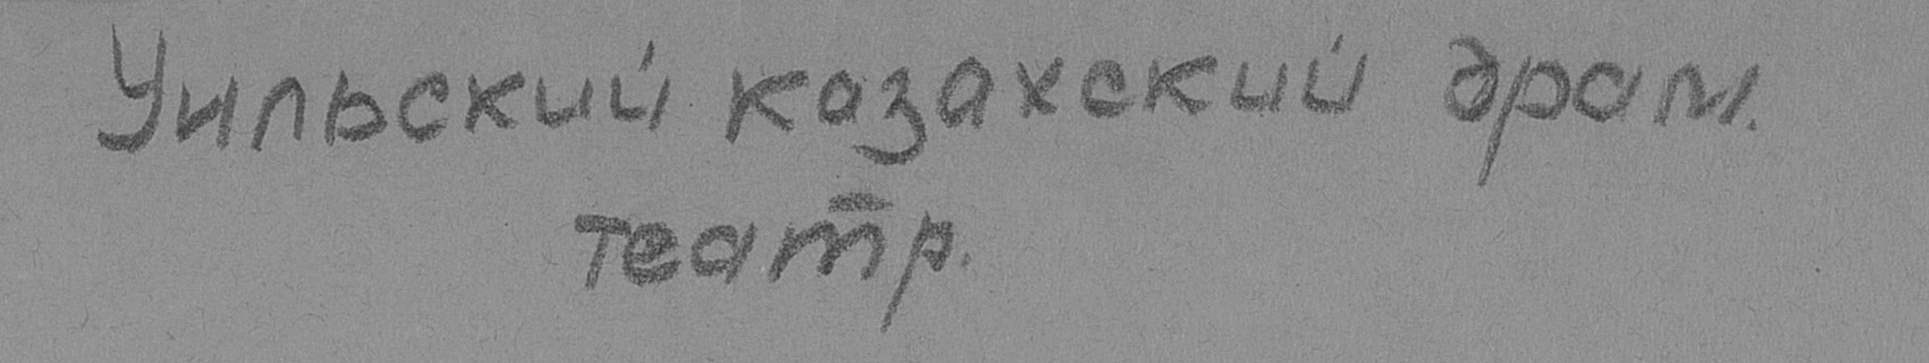 Уильский казахский драм.
театр.